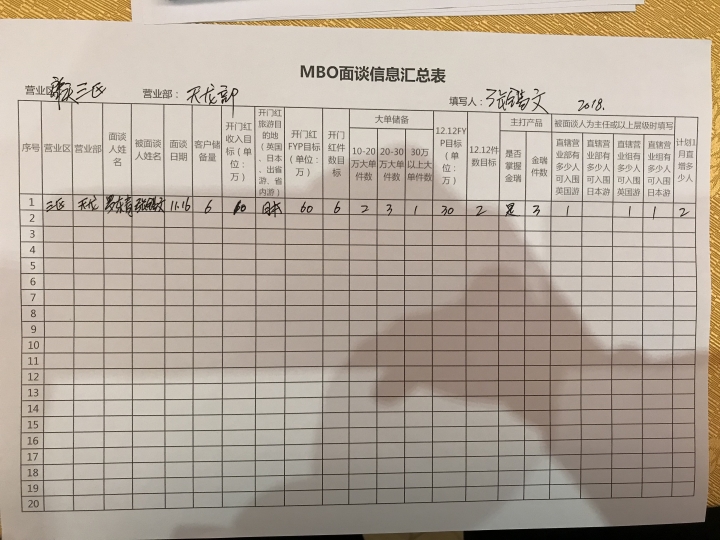 MBO面谈信息汇总表
营业区 三区 营业部： 天龙部 填写人： 2018.
大单储备 主打产品 被面谈人为主任或以上层级时填写
序号 营业区 营业部 面谈人姓名 被面谈人姓名 面谈日期 客户储备量 开门红收入目标（单位：万） 开门红旅游目的地（英国、日本、出省游、省内游） 开门红FYP目标（单位：万） 开门红件数目标 10-20万大单件数 20-30万大单件数 30万以上大单件数 12.12FYP目标（单位：万） 12.12件数目标 是否掌握金瑞 金瑞件数 直辖营业部有多少人可入围英国游 直辖营业部有多少人可入围日本游 直辖营业组有多少人可入围英国游 直辖营业组有多少人可入围日本游 计划1月直增多少人
1 三区 天龙 11.16 6 60 日本 60 6 2 3 1 30 2 是 3 1 1 1 2
2
3
4
5
6
7
8
9
10
11
12
13
14
15
16
17
18
19
20